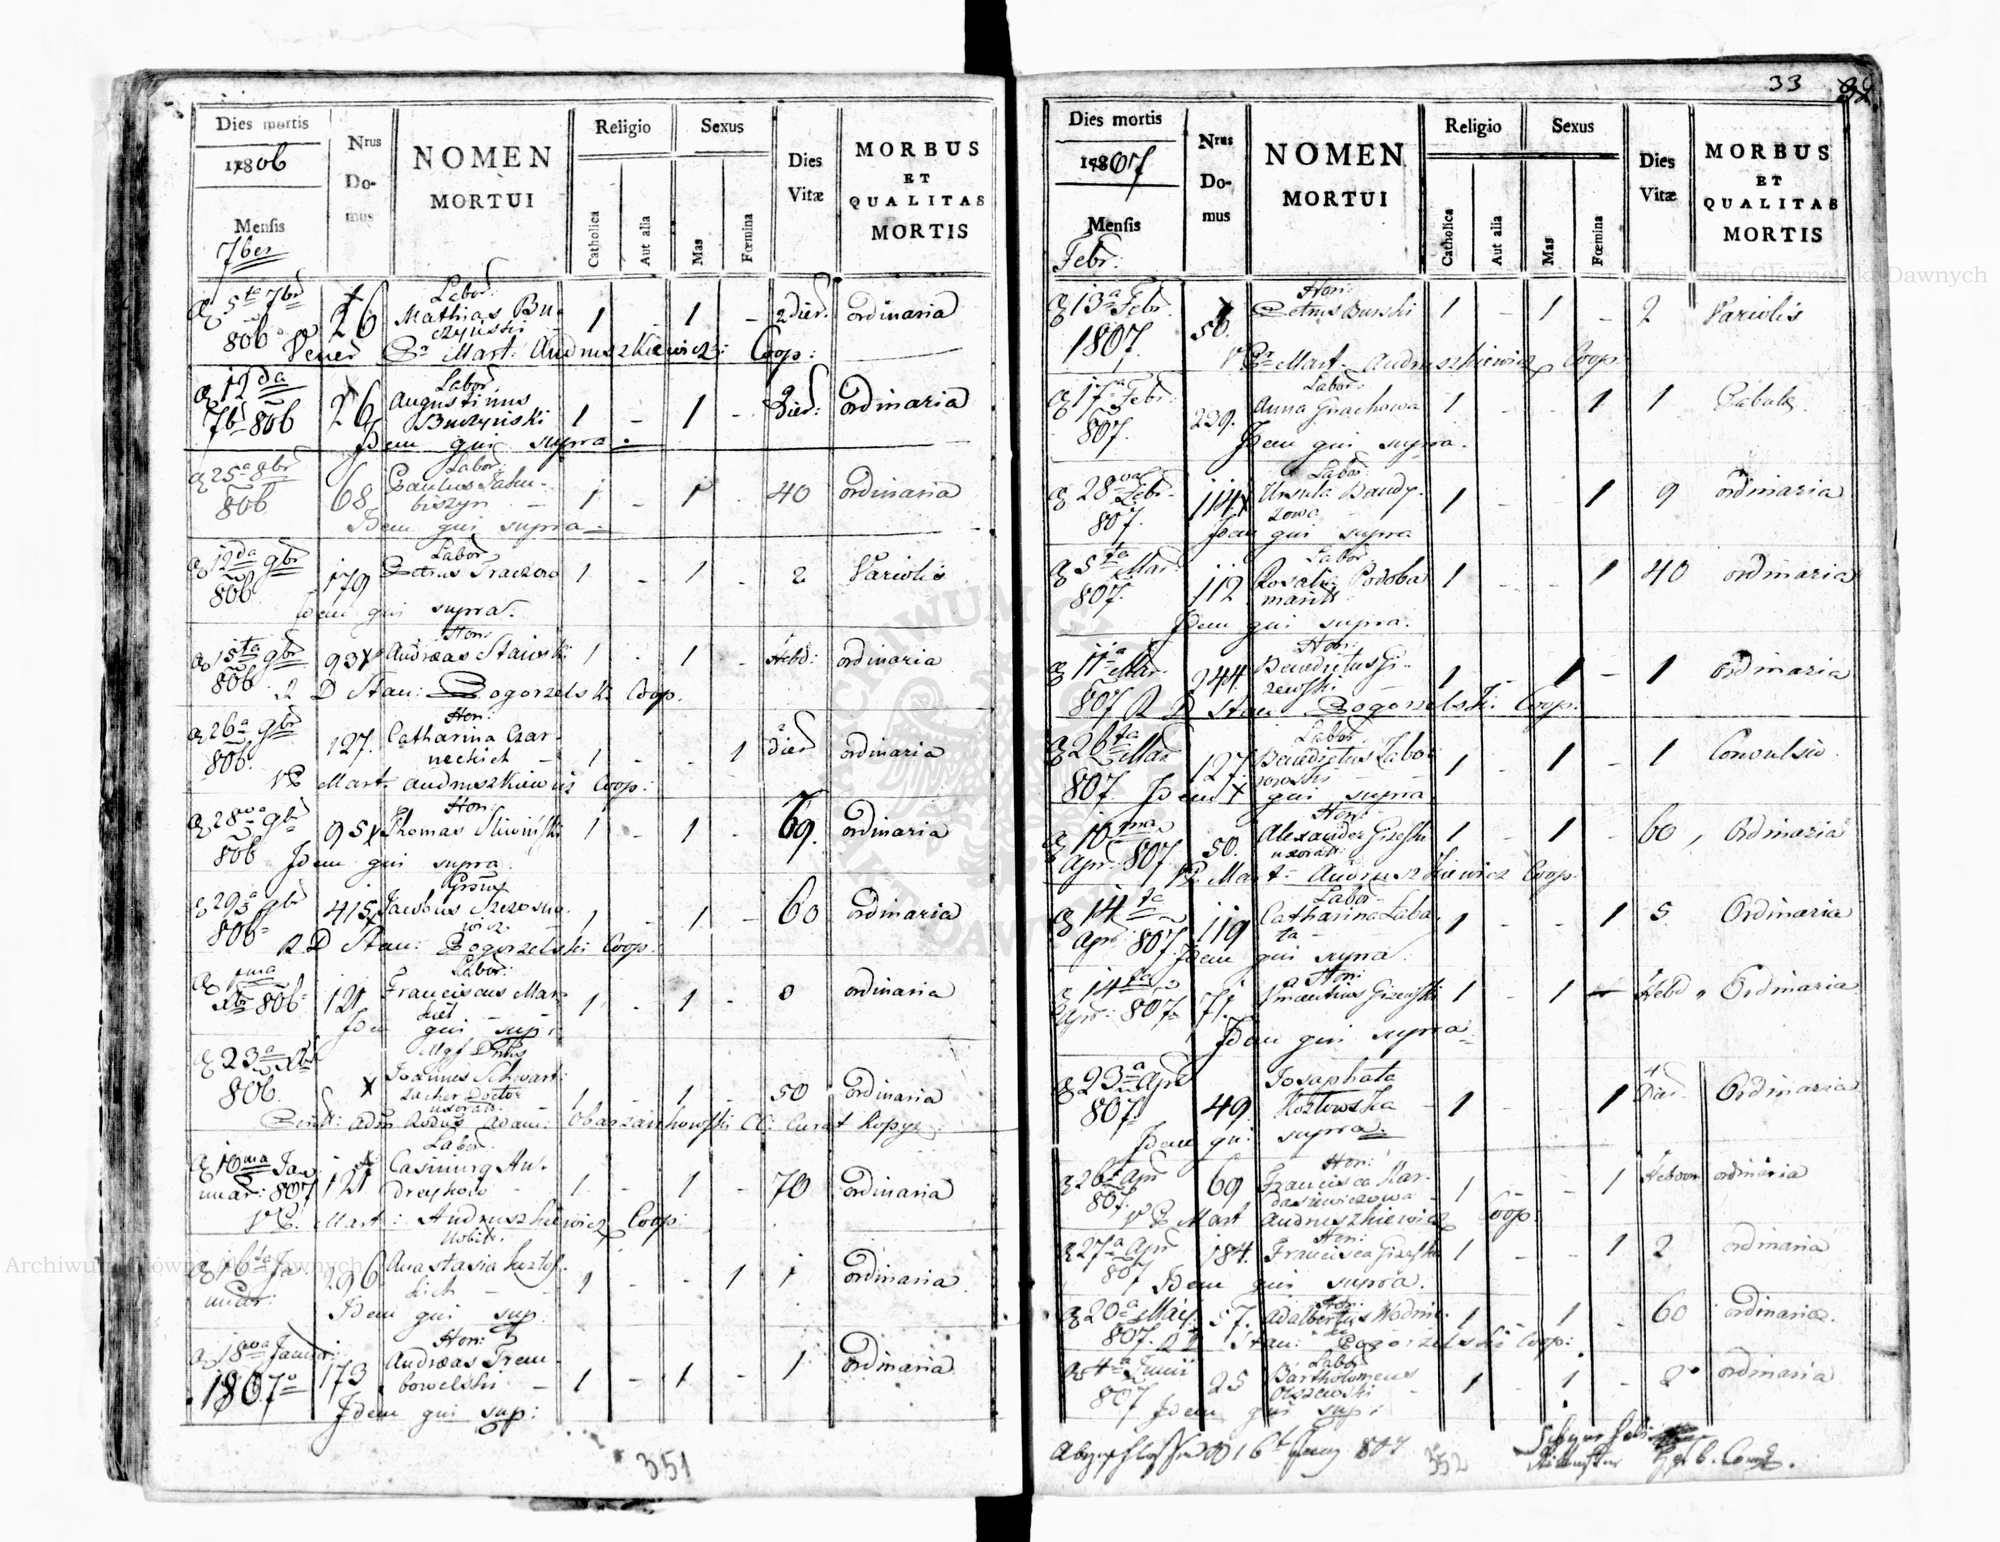 Dies mortis
1806
Mensis
7ber
Nrus
Do-
mus
NOMEN
MORTUI
Religio
Catholica
Aut alia
Sexus
Mas
Fœmina
Dies
Vitæ
MORBUS
ET
QUALITAS
MORTIS
Labor:
5ta 7br 26 Mathias Bu- 1 - 1 - 2 Dier ordinaria
806 czyński
Vener Pr Mart: Andruszkiewicz: Coop:
12da Labor
7br 806 26 Augustinus 1 - 1 - Dier: ordinaria
Buczynski
Idem qui supra
25a 8br Labor:
806 68 Paulus Jaku- 1 - 1 - 40 ordinaria
biszyn
Idem qui supra
12da 9br Labor
806 179 Petrus Traczew 1 - 1 - 2 Variolis
Idem qui supra.
15ta 9br Hon:
806 93 Andreas Stawski 1 - 1 - Hebd: ordinaria
R D Stan: Pogorzelski Coop.
26a 9br Hon:
806. 127. Catharina Czar- 1 - - 1 Dier ordinaria
neckich
V P Mart: Andruszkiewicz Coop:
28va 9br Hon:
806 95 Thomas Sliwiński 1 - 1 - 69. ordinaria
Idem qui supra
29a 9br
806 415 Jacobus Szczesno- 1 - 1 - 60 ordinaria
wicz
R D Stan: Pogorzelski Coop:
1ma Labor:
Xbr 806 121 Franciscus Mar- 1 - 1 - 8 ordinaria
Idem qui sup:
23a Xbr
806. Joannes Schwart: 1 - 1 - 50 ordinaria
zacher Doctor
uxorat:
Labor.
10ma Jan- Casimirg An- 1 - 1 - 70 ordinaria
nuar: 807 121 dreykow
V P. Mart: Andruszkiewicz Coop:
Nobilis
16ta Ja- 296 Anastasia 1 - - 1 1 ordinaria
nuar:
Idem qui sup:
18va Januar: Hon:
1807 173 Andreas Trem- 1 - 1 - 1 ordinaria
bowelski
Idem qui sup:
351
33
Dies mortis
1807
Mensis
Febr:
Nrus
Do-
mus
NOMEN
MORTUI
Religio
Catholica
Aut alia
Sexus
Mas
Fœmina
Dies
Vitæ
MORBUS
ET
QUALITAS
MORTIS
Hon:
13a Febr. Petrus Burski 1 - 1 - 2 Variolis
1807. 50.
V Pr Mart. Andruszkiewicz Coop:
17a Febr: Labor:
807. 239. Anna Grochowa 1 - - 1 1
Idem qui supra.
28va Febr. Labor:
807. 114 Ursula Bandy- 1 - - 1 9 ordinaria
zowa
Idem qui supra
5ta Mar: Labor
807. 112 Rosalia Podoba 1 - - 1 40 ordinaria
marit
Idem qui supra.
11a Mar Hon:
244. Benedictus Gi- 1 - 1 - 1 ordinaria
zewski
807 R D Stan: Pogorzelski: Coop.
26ta Mar Labor
127. Benedictus Zabo- 1 - 1 - 1 Convulsio.
rowski
807. Idem qui supra
10ma Hon:
Apr: 807 50. Alexander Gizeski 1 - 1 - 60 Ordinaria
uxorat:
V P Mart: Andruszkiewicz Coop.
14ta Labor
Apr 807 119 Catharina Laba- 1 - - 1 5 Ordinaria
ta
Idem qui supra:
14ta Hon:
Apr: 807 71. Vincentius Gizewski 1 - 1 - Hebd Ordinaria
Idem qui supra
23a Apr Josaphata
807 49. Kozłowska - 1 - - 1 4 Dier. Ordinaria
Idem qui supra
26ta Apr Hon:
807. 69 Francisca Kar- 1 - - 1 ordinaria
dasiewiczowa
V P Mart Andruszkiewicz Coop:
27a Apr Hon:
807 184. Francisca Gizeski 1 - - 1 2 ordinaria
Idem qui supra.
20a Maij Hon:
57. Adalbertus 1 - 1 - 60 ordinaria
807. R D Stan: Pogorzelski Coop:
4a Junii Labor
807 25 Bartholomeus 1 - 1 - 2 ordinaria
Olszewski
Idem qui sup:
Abgeschlossen d 16t Juny 807
352
Archiwum Główne Akt Dawnych